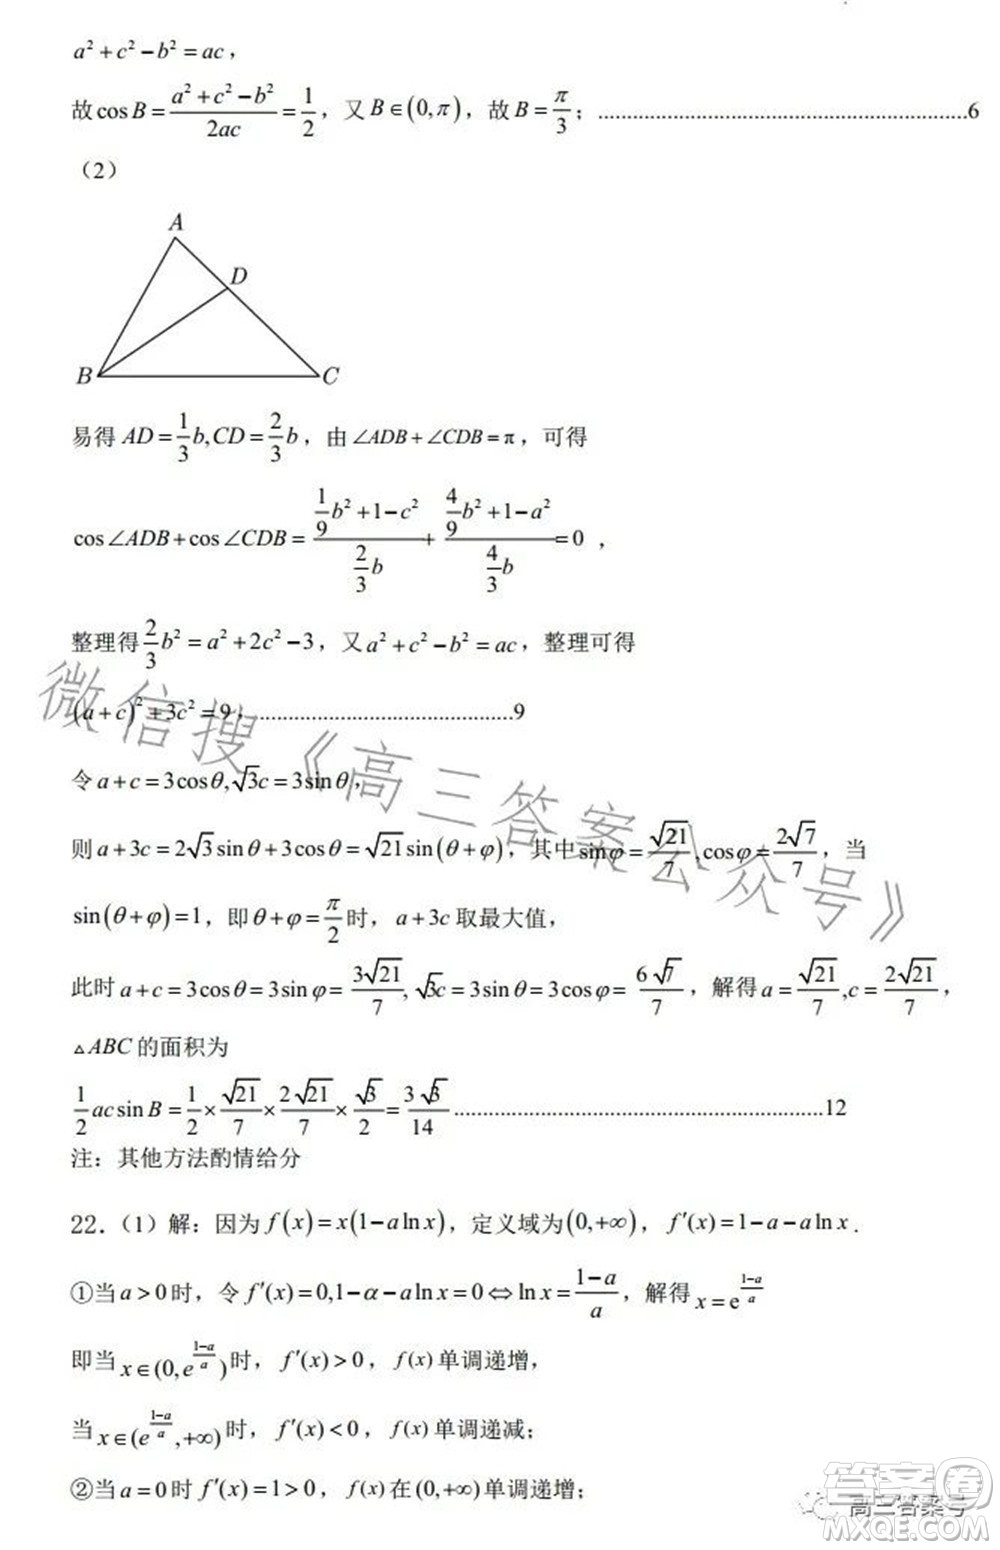 a² + c² − b² = ac，
故 cos B = (a² + c² − b²)/(2ac) = 1/2，又 B ∈ (0, π)，故 B = π/3；................................................................6
（2）
A
D
B
C
易得 AD = (1/3)b, CD = (2/3)b，由 ∠ADB + ∠CDB = π，可得
cos∠ADB + cos∠CDB = ((1/9)b² + 1 − c²)/((2/3)b) + ((4/9)b² + 1 − a²)/((4/3)b) = 0，
整理得 (2/3)b² = a² + 2c² − 3，又 a² + c² − b² = ac，整理可得
(a + c)² + 3c² = 9，.............................................9
令 a + c = 3cosθ, √3c = 3sinθ，
则 a + 3c = 2√3 sinθ + 3cosθ = √21 sin(θ + φ)，其中 sinφ = √21/7, cosφ = 2√7/7，当
sin(θ + φ) = 1，即 θ + φ = π/2 时，a + 3c 取最大值，
此时 a + c = 3cosθ = 3sinφ = 3√21/7, √3c = 3sinθ = 3cosφ = 6√7/7，解得 a = √21/7, c = 2√21/7，
△ABC 的面积为
(1/2)ac sin B = 1/2 × √21/7 × 2√21/7 × √3/2 = 3√3/14 ................................................................12
注：其他方法酌情给分
22．（1）解：因为 f(x) = x(1 − a ln x)，定义域为 (0, +∞)，f′(x) = 1 − a − a ln x．
①当 a > 0 时，令 f′(x) = 0, 1 − α − a ln x = 0 ⇔ ln x = (1 − a)/a，解得 x = e^((1−a)/a)
即当 x ∈ (0, e^((1−a)/a)) 时，f′(x) > 0，f(x) 单调递增，
当 x ∈ (e^((1−a)/a), +∞) 时，f′(x) < 0，f(x) 单调递减；
②当 a = 0 时 f′(x) = 1 > 0，f(x) 在 (0, +∞) 单调递增；
微信搜《高三答案公众号》
高三答案号
答案圈
MXQE.COM